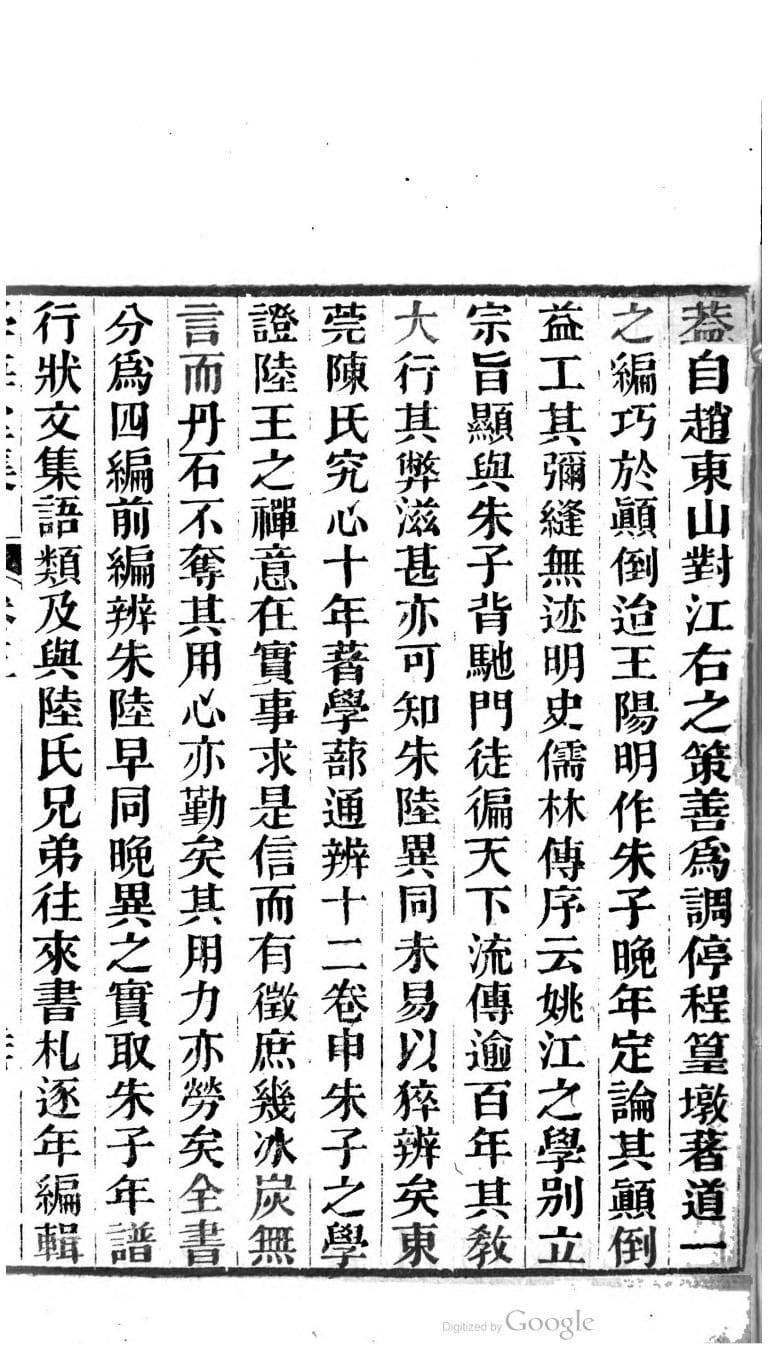 葢自趙東山對江右之策善爲調停程篁墩著道一
之編巧於顚倒迨王陽明作朱子晩年定論其顚倒
益工其彌縫無迹明史儒林傳序云姚江之學别立
宗旨顯與朱子背馳門徒徧天下流傳逾百年其敎
大行其弊滋甚亦可知朱陸異同未易以猝辨矣東
莞陳氏究心十年著學蔀通辨十二卷申朱子之學
證陸王之禪意在實事求是信而有徵庶幾冰炭無
言而丹石不奪其用心亦勤矣其用力亦勞矣全書
分爲四編前編辨朱陸早同晩異之實取朱子年譜
行狀文集語類及與陸氏兄弟往來書札逐年編輯
Digitized by Google